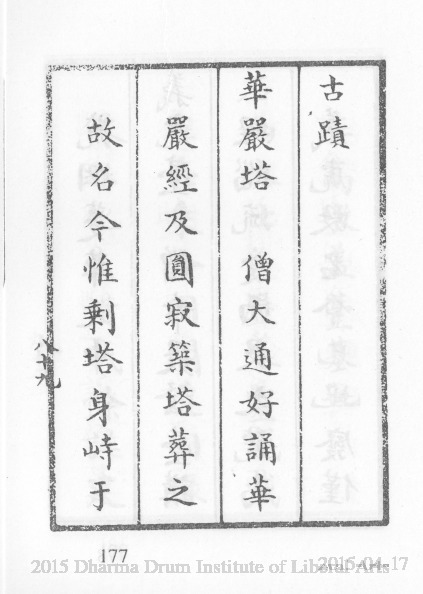 古蹟
華嚴塔　僧大通好誦華
嚴經及圓寂築塔葬之
故名今惟剩塔身峙于
八十九
177
2015 Dharma Drum Institute of Liberal Arts
2015-04-17